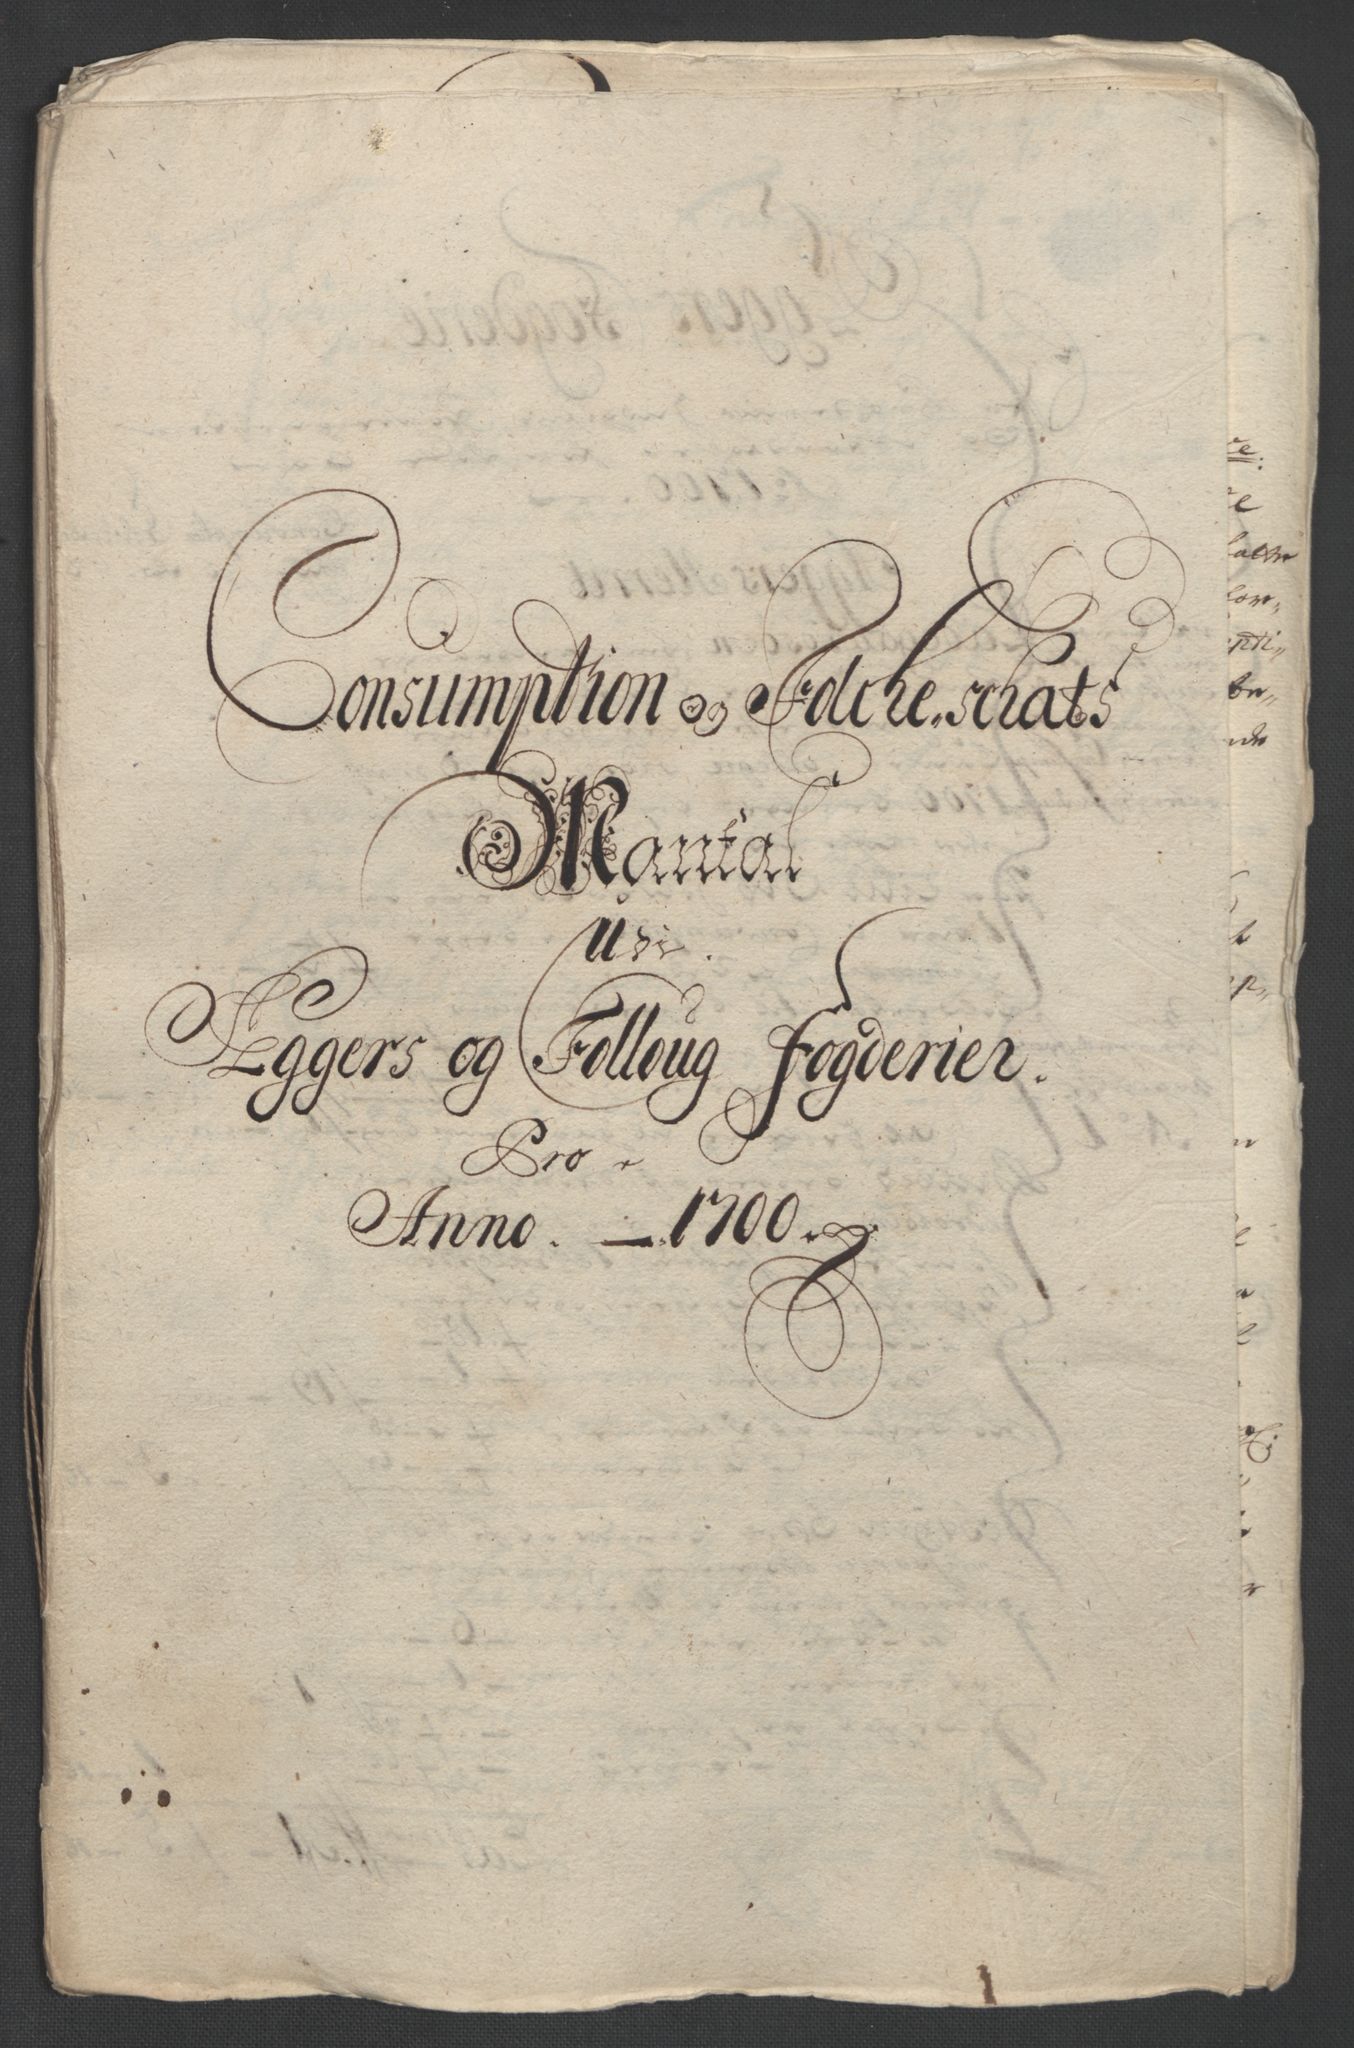 Consumption og Folche schats
Mantal
Udi
Aggers og Folloug fogderier.
Pro
Anno. 1700.